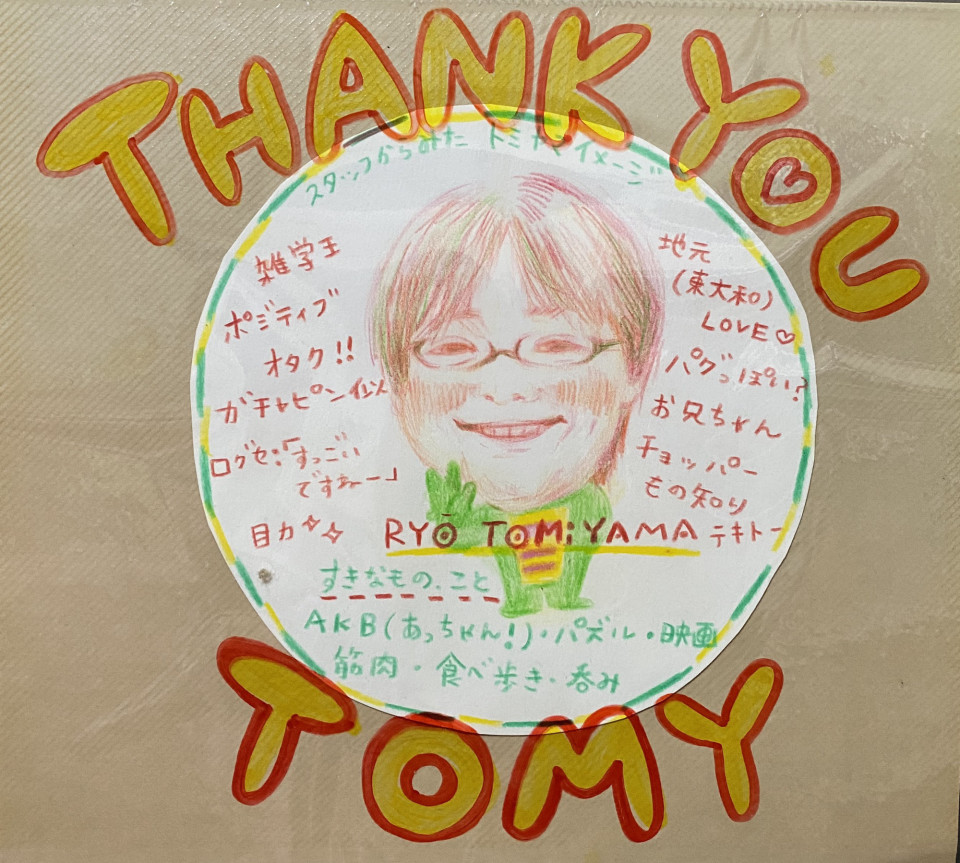 THANK YOU
スタッフからみた トミヤマ イメージ
雑学王
ポジティブ
オタク!!
ガチャピン似
口グセ:「すっごい
ですねー」
目力
地元
(東大和)
LOVE♡
パグっぽい?
お兄ちゃん
チョッパー
もの知り
テキトー
RYO TOMiYAMA
すきなもの、こと
AKB(あっちゃん!)・パズル・映画
筋肉・食べ歩き・呑み
TOMY